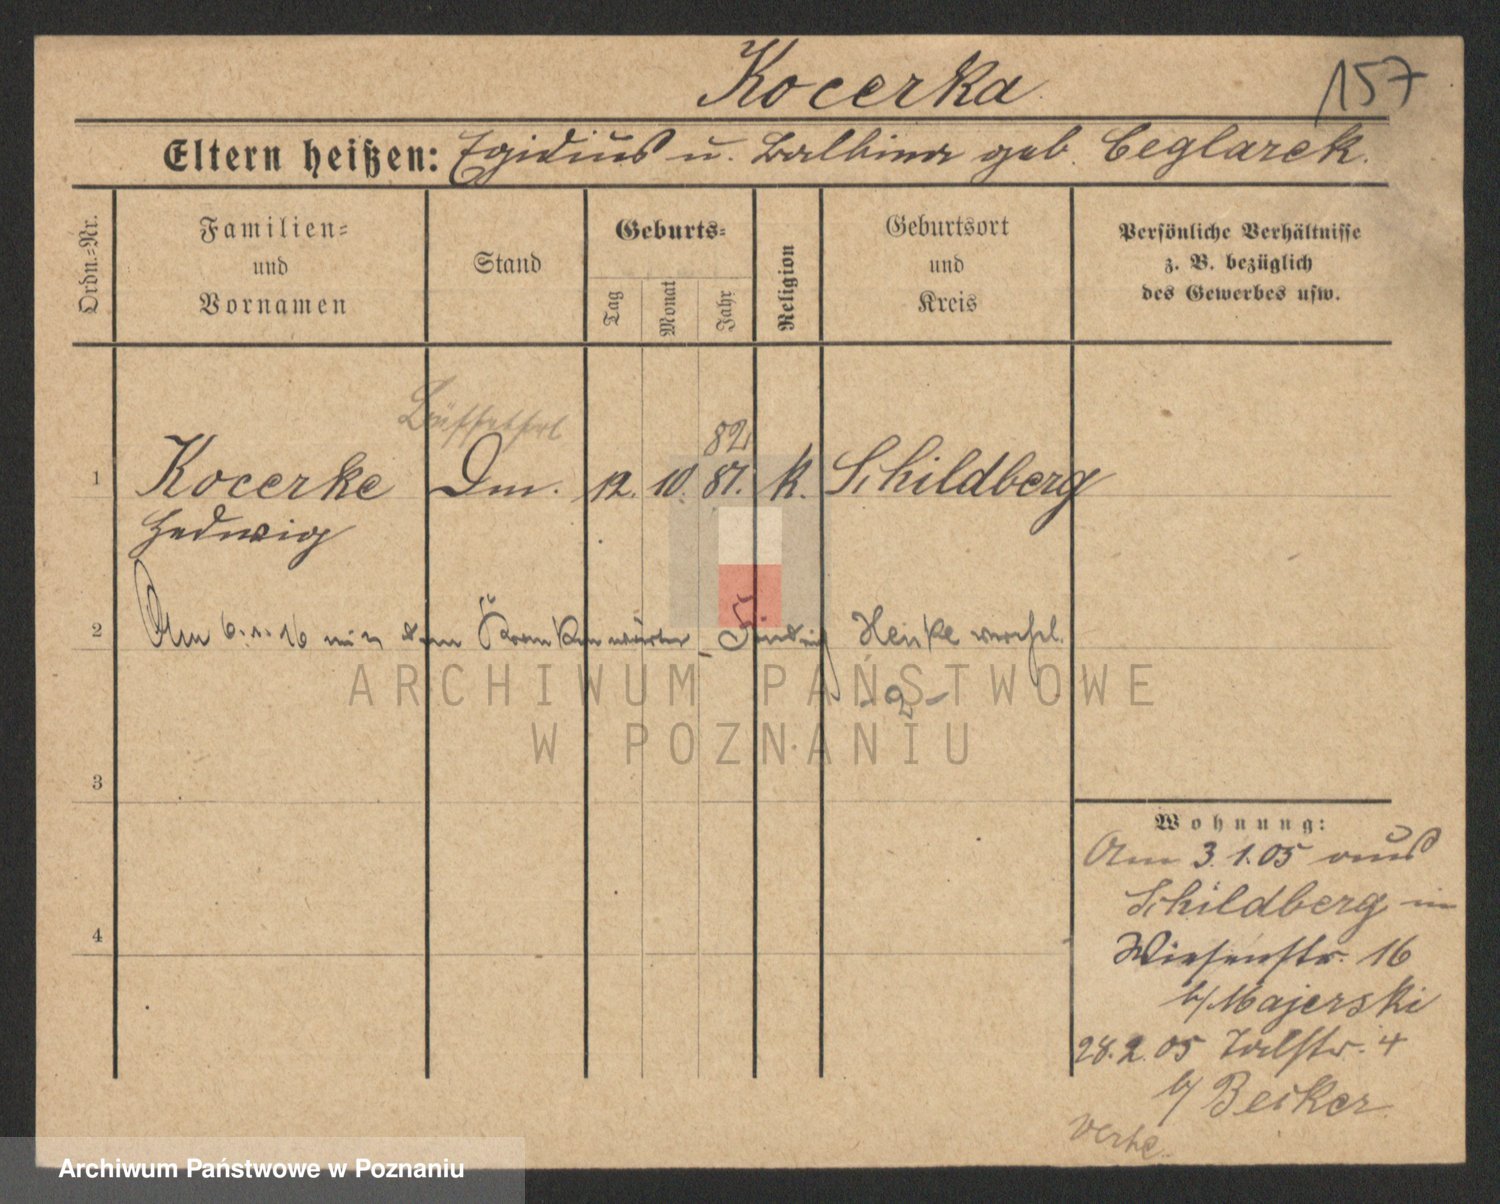 Kocerka
157
Eltern heißen: Egidius u. Balbina geb. Ceglarek.
Ordn.-Nr.
Familien-
und
Vornamen
Stand
Geburts-
Tag
Monat
Jahr
Religion
Geburtsort
und
Kreis
Persönliche Verhältnisse
z. B. bezüglich
des Gewerbes usw.
82
1 Kocerke Dm. 12. 10. 81. k. Schildberg
Hedwig
2 Am 6.1.16 mit dem Krankenwärter Henke verehel.
- 2 -
ARCHIWUM PAŃSTWOWE
W POZNANIU
3
4
Wohnung:
Am 3.1.05 aus
Schildberg in
Wiesenstr. 16
b/ Majerski
28.2.05 Talstr. 4
b/ Becker
Archiwum Państwowe w Poznaniu